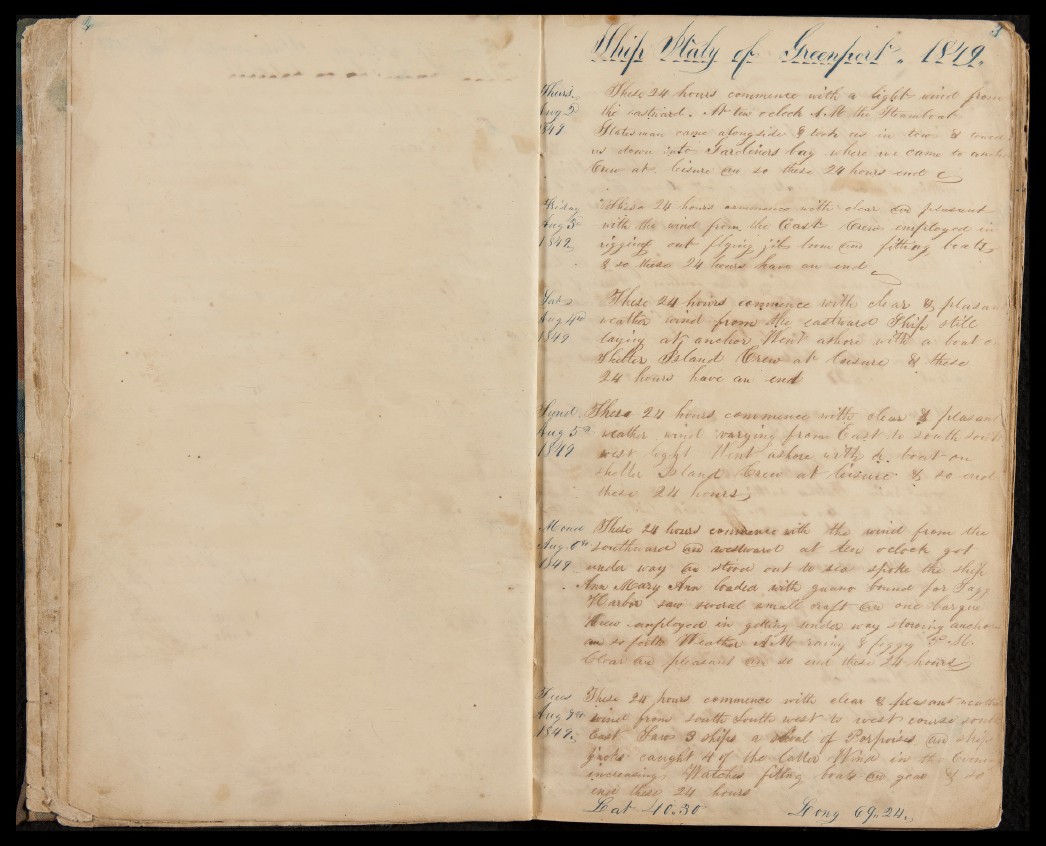 Ship Italy of Greenport. 1849.
Thurs. These 24 hours commence with a light wind from
Aug 2d the eastward. At ten oclock A.M. the Steamboat
1849 Statesman came alongside & took us in tow & towed
us down into Gardiners bay where we came to anchor
Crew at leisure an so these 24 hours end
Friday These 24 hours commence with clear an pleasant
Aug 3d with the wind from the East Crew employed in
1849 rigging out flying jib boom an fitting boats
& so these 24 hours have an end
Sat These 24 hours commence with clear & pleasant
Aug 4th weather wind from the eastward Ship still
1849 laying at anchor Went ashore with a boat
Shelter Island Crew at leisure & these
24 hours have an end
Sund. These 24 hours commence with clear & pleasant
Aug 5th weather wind varying from East to south south
1849 west light Went ashore with a boat on
shelter Island Crew at leisure & so end
these 24 hours
These 24 hours commence with the wind from the
Aug. 6th southward an westward at ten oclock got
1849 under way an stood out to sea spoke the ship
Ann Mary Ann loaded with guano bound for Sagg
Harbor saw several small craft an one barque
Crew employed in getting under way stowing anchors
an so forth Weather A.M. rainy & foggy P.M.
Clear an pleasant an so end these 24 hours
Tues These 24 hours commence with clear & pleasant weather
Aug 7th wind from south South west to west course south
1849 East Saw 3 ships a shoal of Porpoises an
caught 4 of the latter Wind in the Evening
increasing Watches fitting boats an gear & so
end these 24 hours
Lat 40..30 Long 69..24.